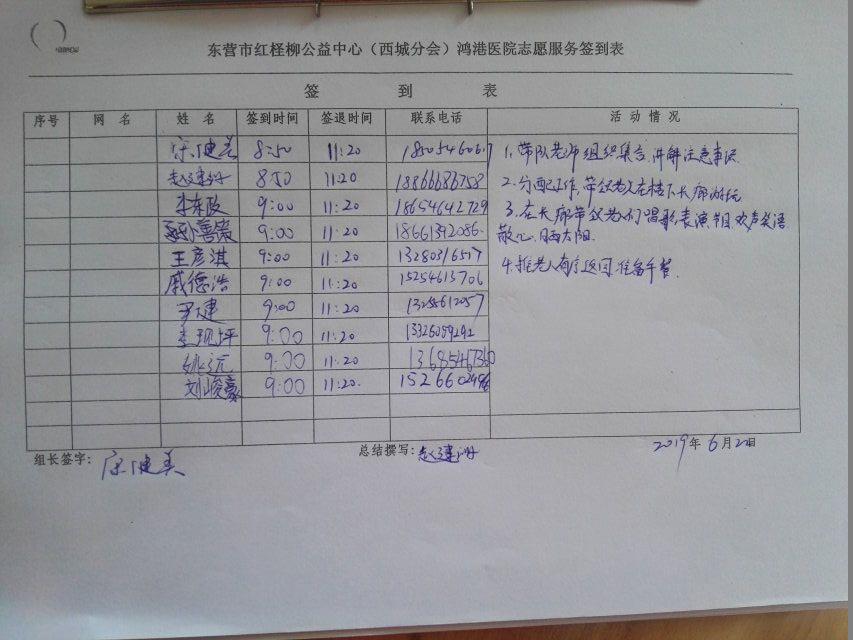 东营市红柽柳公益中心（西城分会）鸿港医院志愿服务签到表
签 到 表
序号 网名 姓名 签到时间 签退时间 联系电话 活动情况
宋健美 8:50 11:20
赵建沙 8:50 11:20 18866686758
李东政 9:00 11:20 18654642729
9:00 11:20 18661392086
王彦淇 9:00 11:20 13280316517
戚德浩 9:00 11:20 15254613706
尹建 9:00 11:20
李现坪 9:00 11:20
姚远 9:00 11:20
刘峻豪 9:00 11:20
1、带队老师组织集合，讲解注意事项
2、分配工作，带领老人在楼下长廊游玩
3、在长廊带领老人们唱歌，表演节目，欢声笑语
散心、晒太阳.
4、推老人有序返回，准备午餐.
组长签字：宋健美 总结撰写：赵建沙 2019年6月22日